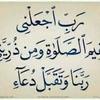 رَبِّ اجْعَلْنِي
قِيمَ الصَّلَوٰةِ وَمِن ذُرِّيَّ
رَبَّنَا وَتَقَبَّلْ دُعَاءِ